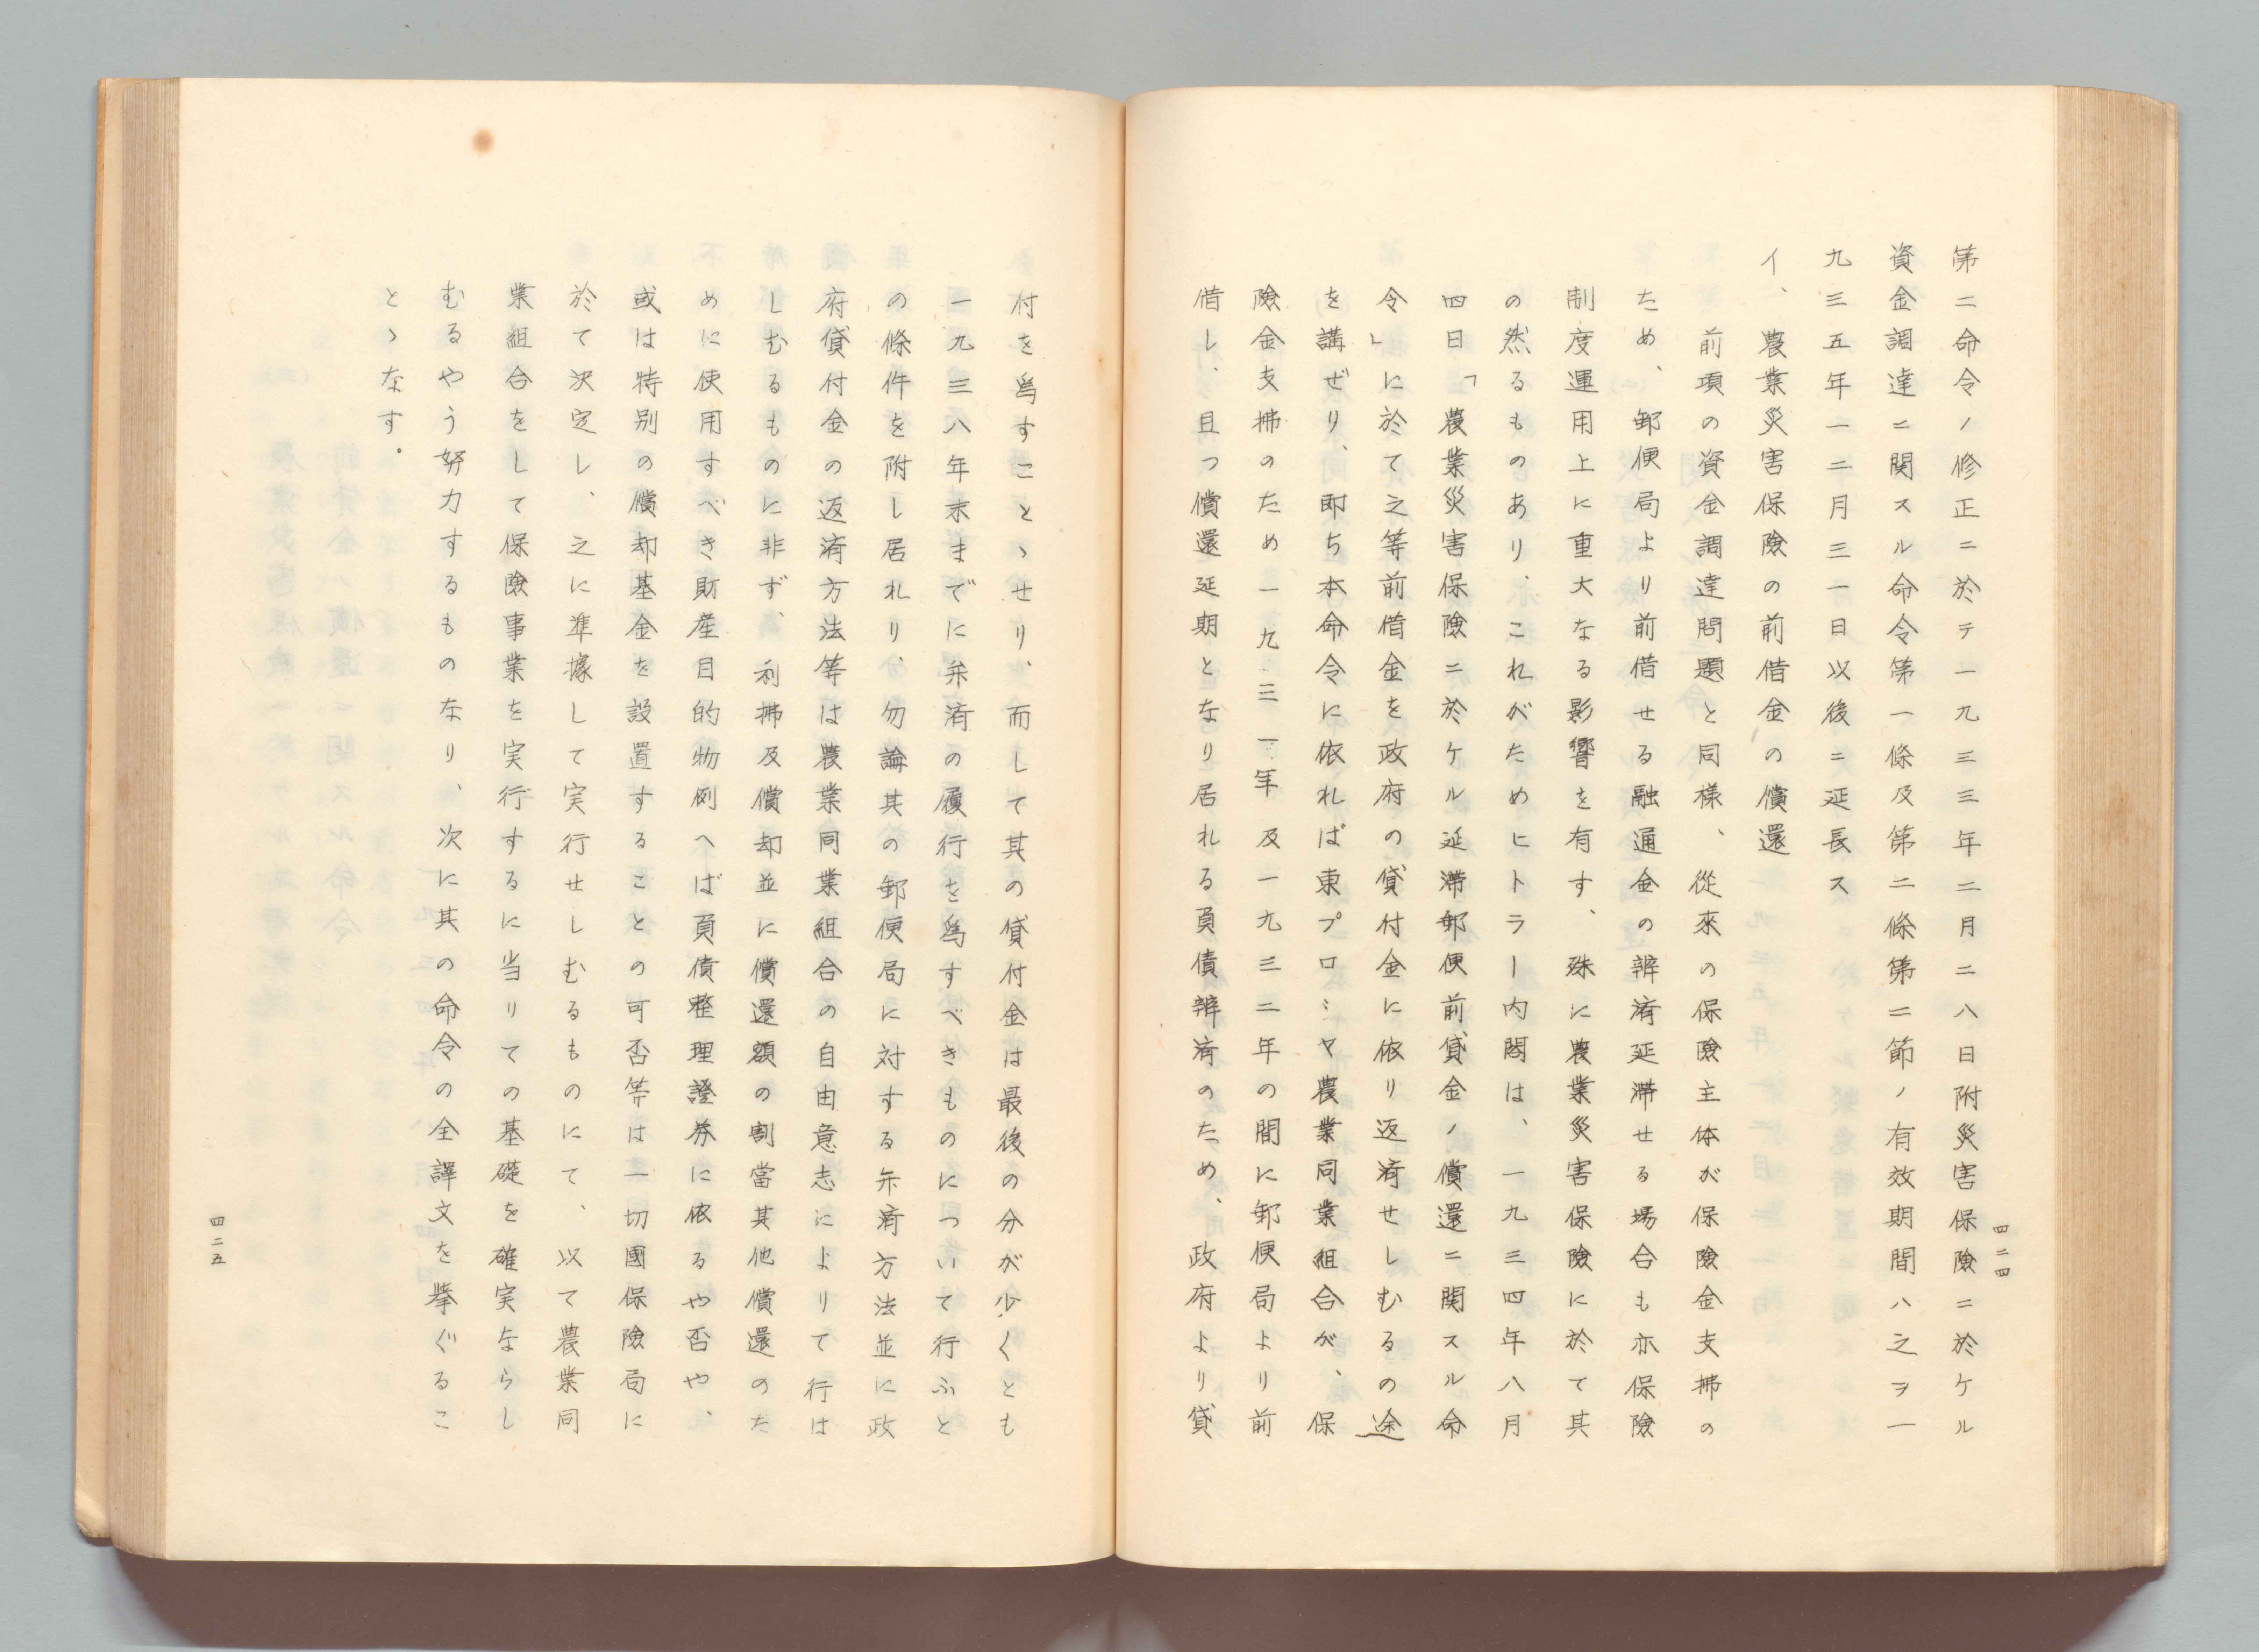 第二命令ノ修正ニ於テ一九三三年二月二八日附災害保險ニ於ケル
資金調達ニ関スル命令第一條及第二條第二節ノ有效期間ハ之ヲ一
九三五年一二月三一日以後ニ延長ス
イ、農業災害保險の前借金の償還
前項の資金調達問題と同様、從來の保險主体が保險金支拂の
ため、郵便局より前借せる融通金の辨済延滞せる場合も亦保險
制度運用上に重大なる影響を有す、殊に農業災害保險に於て其
の然るものあり、これがためヒトラー内閣は、一九三四年八月
四日「農業災害保險ニ於ケル延滞郵便前貸金ノ償還ニ関スル命
令」に於て之等前借金を政府の貸付金に依り返済せしむるの途
を講ぜり、即ち本命令に依れば東プロミヤ農業同業組合が、保
險金支拂のため一九三一年及一九三二年の間に郵便局より前
借し、且つ償還延期となり居れる負債辨済のため、政府より貸
四二四
付を爲すことゝせり、而して其の貸付金は最後の分が少くとも
一九三八年末までに弁済の履行を爲すべきものについて行ふと
の條件を附し居れり、勿論其の郵便局に対する弁済方法並に政
府貸付金の返済方法等は農業同業組合の自由意志によりて行は
しむるものに非ず、利拂及償却並に償還額の割當其他償還のた
めに使用すべき財産目的物例へば負債整理證券に依るや否や、
或は特別の償却基金を設置することの可否等は一切國保險局に
於て決定し、之に準據して実行せしむるものにて、以て農業同
業組合をして保險事業を実行するに当りての基礎を確実ならし
むるやう努力するものなり、次に其の命令の全譯文を挙ぐるこ
とゝなす。
四二五